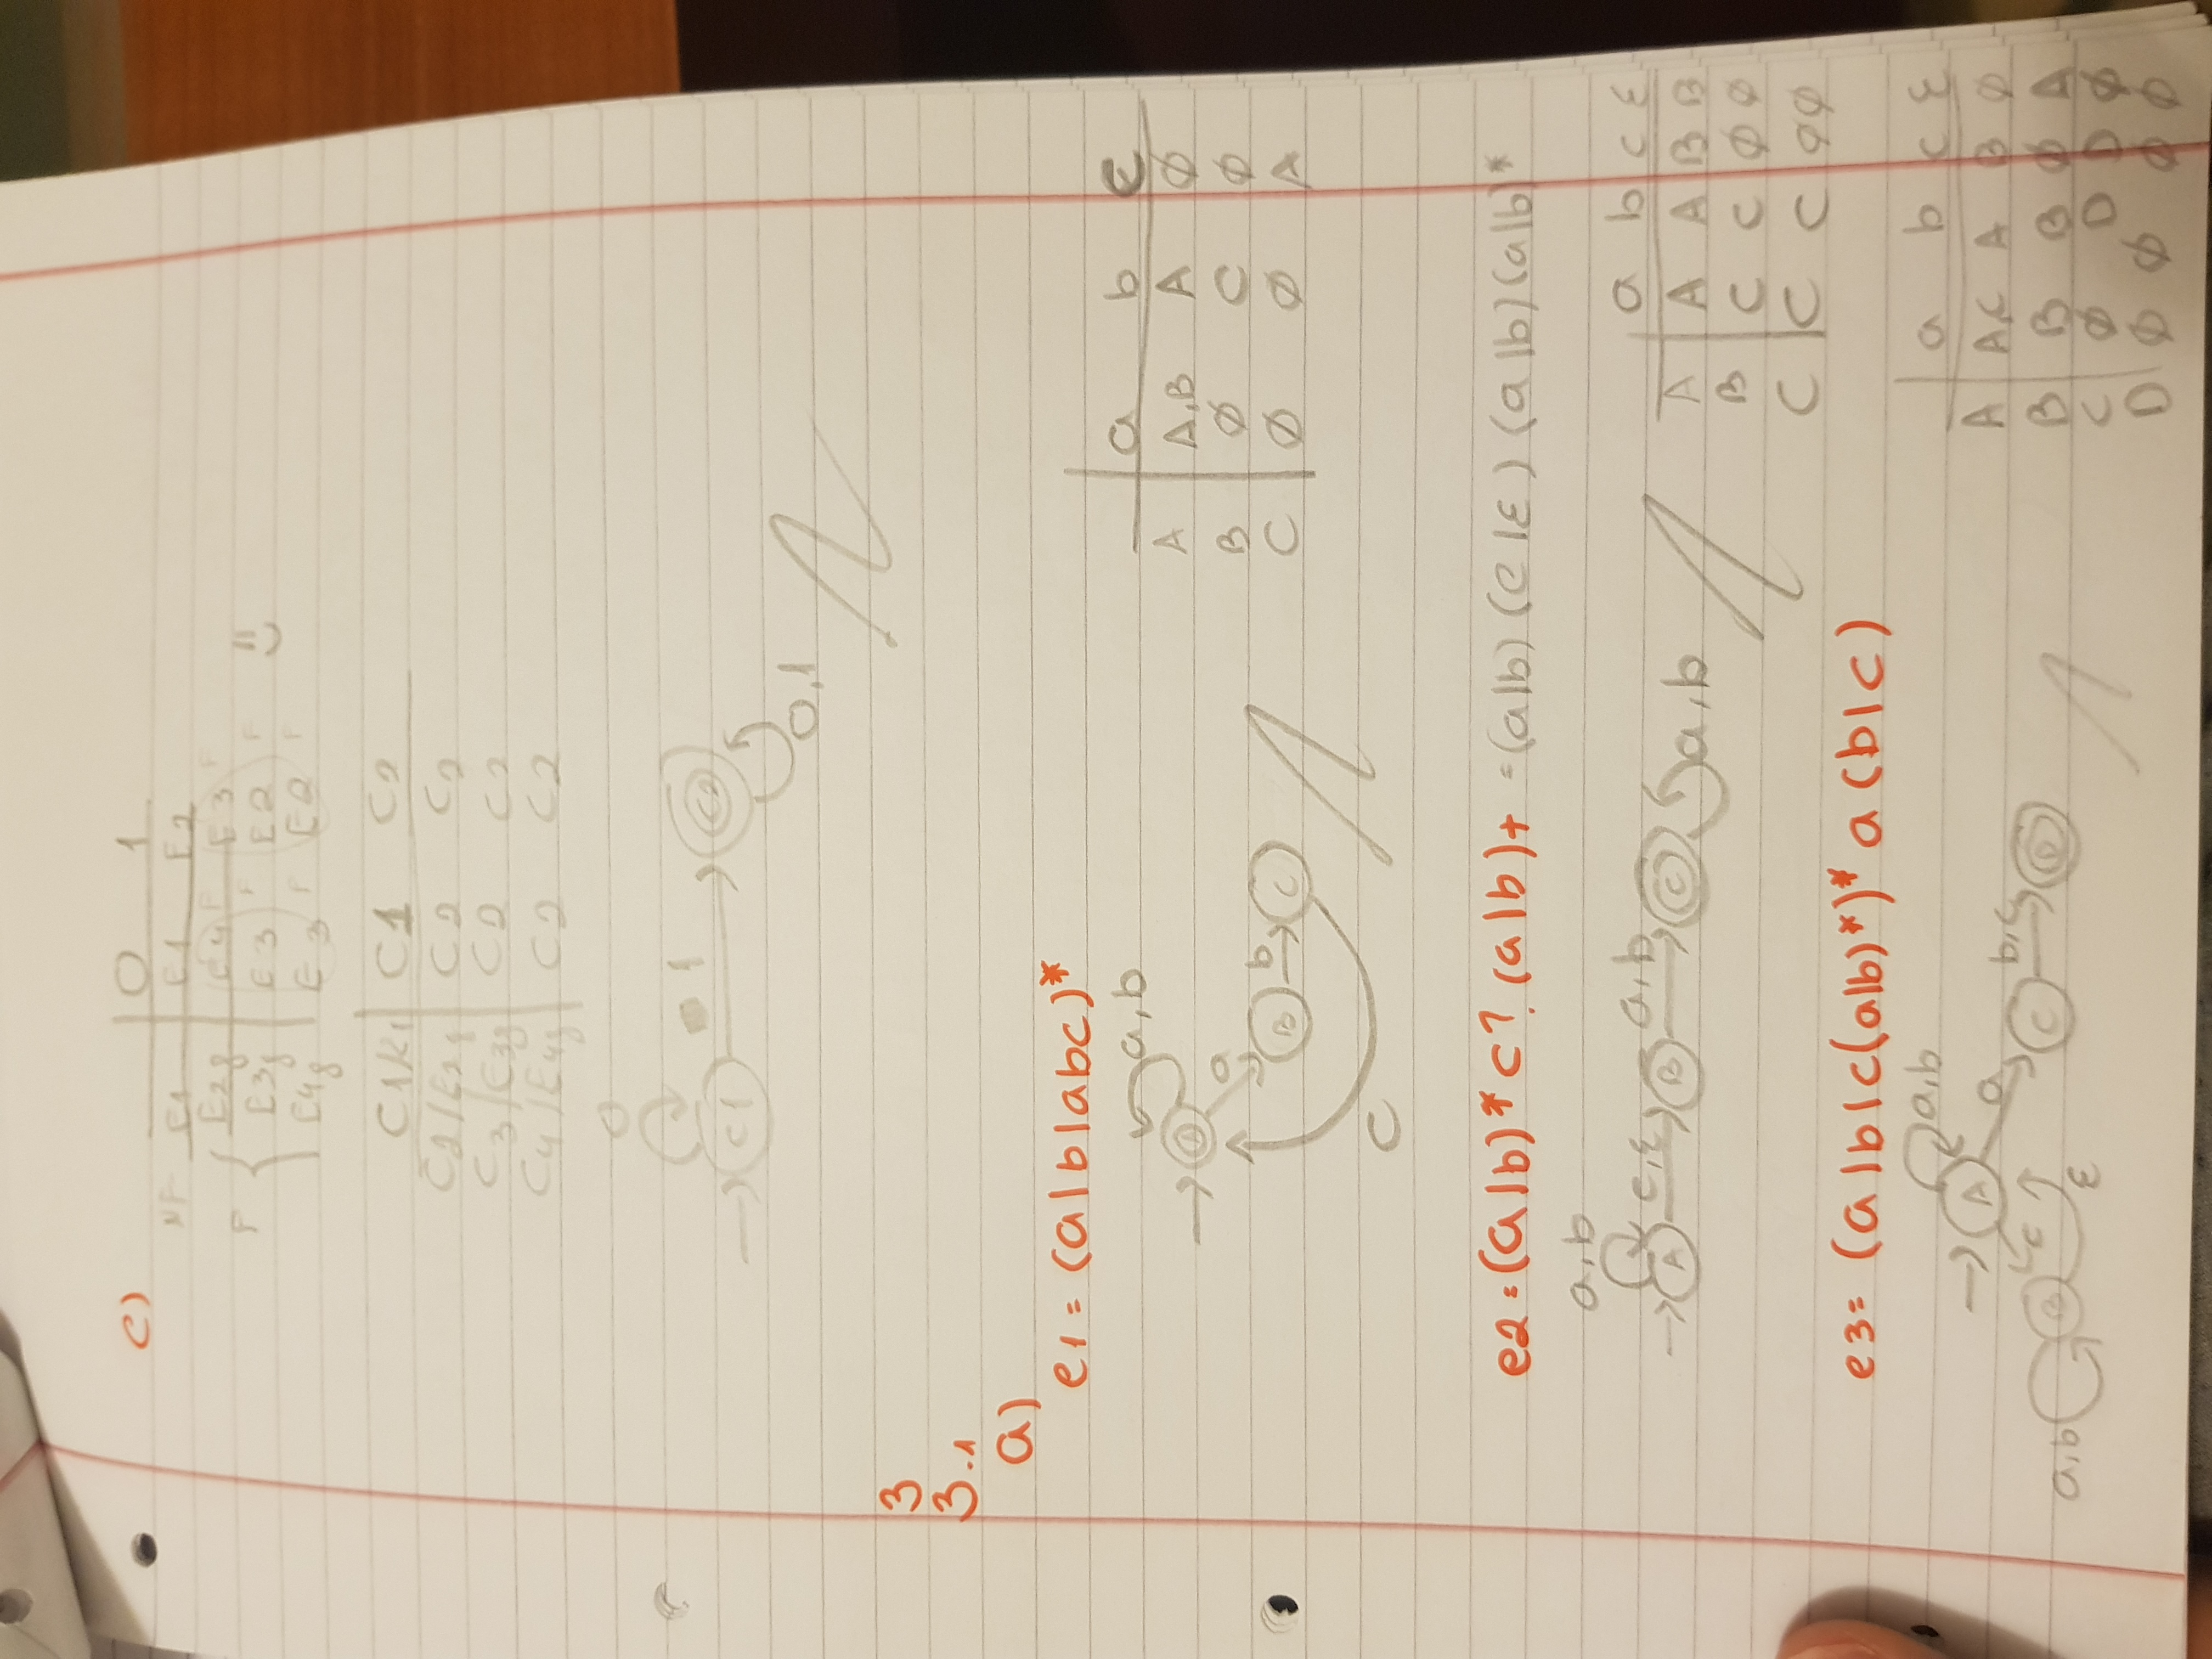 c) 0 1
NF E1 E1 E2
E2f E4 F E3 F
F { E3f E3 F E2 F
E4f E3 F E2 F
C1/E1 C1 C2
C2/E2f C2 C2
C3/E3f C2 C2
C4/E4f C2 C2
0
1
C1 C2
0,1
3
3.1
a)
e1 = (a|b|abc)*
a,b
A
a
B b C
C
a b ε
A A,B A ∅
B ∅ C ∅
C ∅ ∅ A
e2 = (a|b)* c? (a|b)+ = (a|b) (c|ε) (a|b)(a|b)*
a,b
A c,ε B a,b C a,b
a b c ε
A A A B B
B C C ∅ ∅
C C C ∅ ∅
e3 = (a|b|c(a|b)*)* a (b|c)
a,b
A
a b,c
a,b B c C D
ε
a b c ε
A A,C A B ∅
B B B ∅ A
C ∅ D D ∅
D ∅ ∅ ∅ ∅